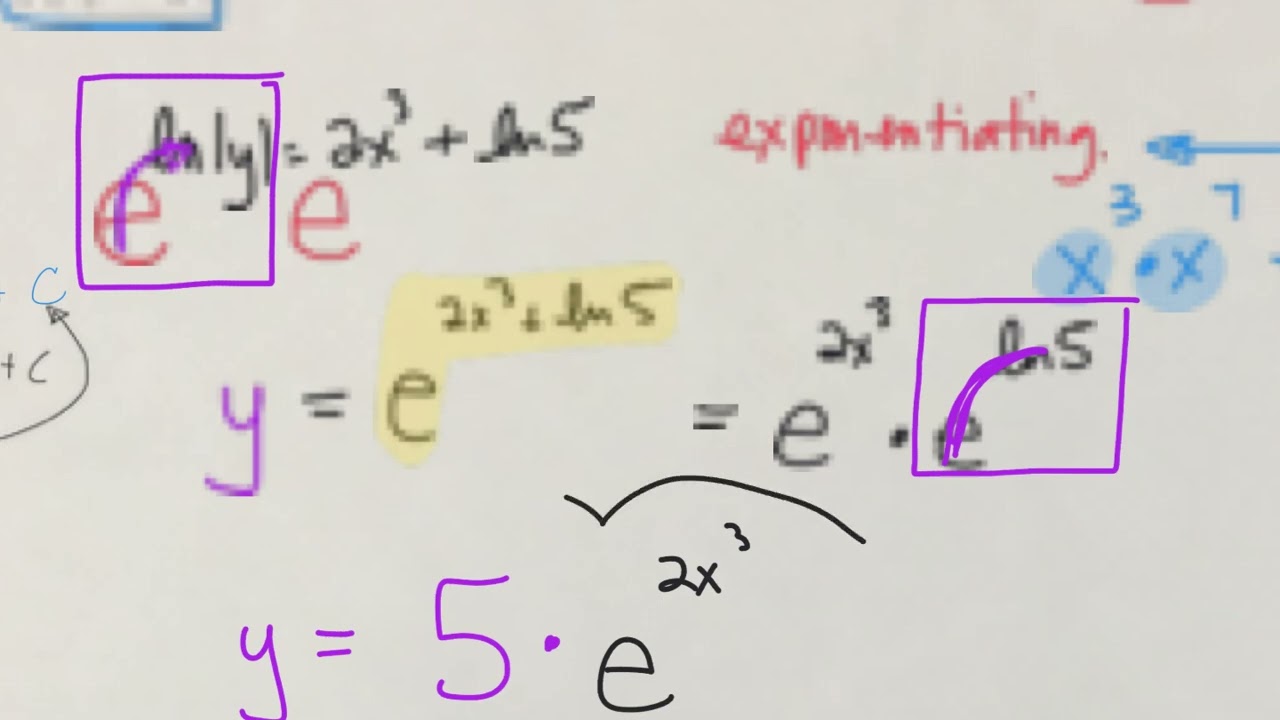 e^{ln|y|} = e^{2x³ + ln 5} exponentiating.
x³ · x⁷
+ C
+ C
y = e^{2x³ + ln 5} = e^{2x³} · e^{ln 5}
y = 5 · e^{2x³}